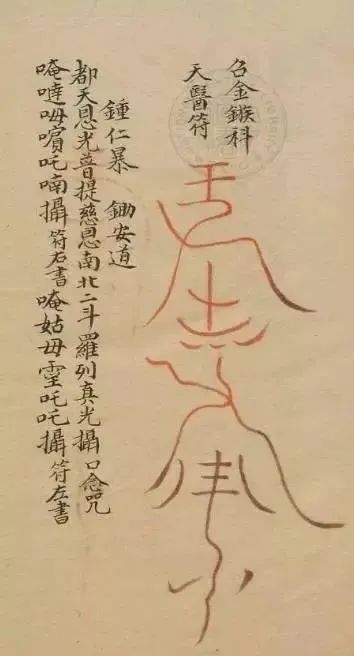 召金鏃科
天醫符
鍾仁暴 鋤安道
都天恩光普提慈恩南北二斗羅列真光攝口念咒
唵噠呣嚬吒喃攝符右書唵姑毋霊吒吒攝符左書